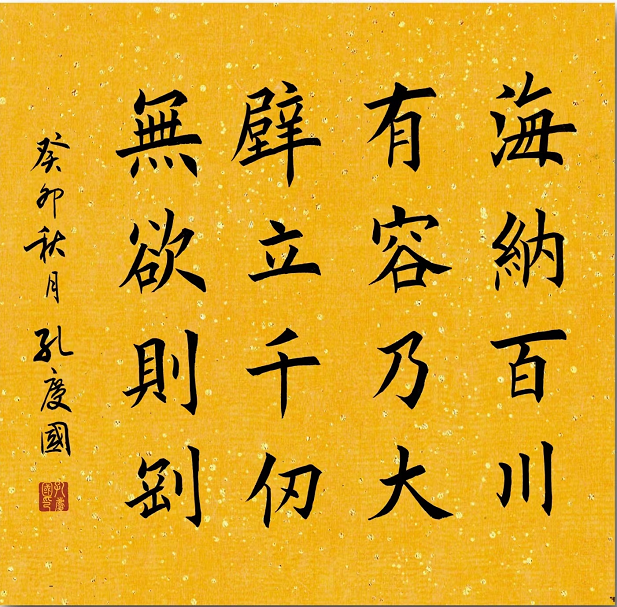 海納百川
有容乃大
壁立千仞
無欲則剛
癸卯秋月 孔慶國